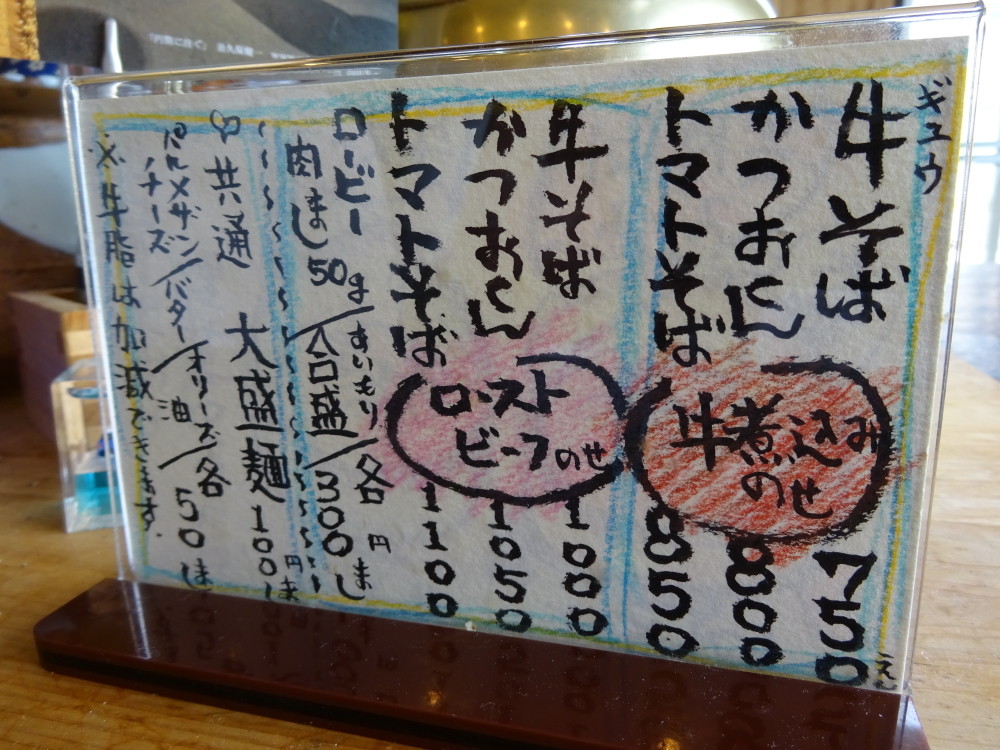 ギュウ
牛そば
750
えん
かつおくん
800
トマトそば
850
牛煮込み
のせ
牛そば
1000
かつおくん
1050
トマトそば
1100
ロースト
ビーフのせ
ロービー
肉まし50g/合盛/各
あいもり
300円まし
共通 大盛麺100円まし
パルメザン/バター/オリーブ油/各50まし
チーズ
※牛脂は加減できます.